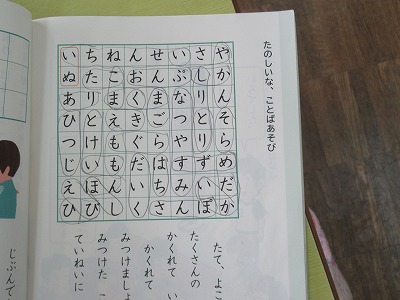 たのしいな、ことばあそび
やかんそらめだか
さしりとりずいぼ
いぷなつやすみん
せんまごらはちさ
んおくきぐだいく
ねこまえももんし
ちたりとけいほび
いぬあひつじえひ
たて、よこ
たくさんの
かくれて い
みつけましょ
かくれて
みつけた こ
ていねいに
じぶんで